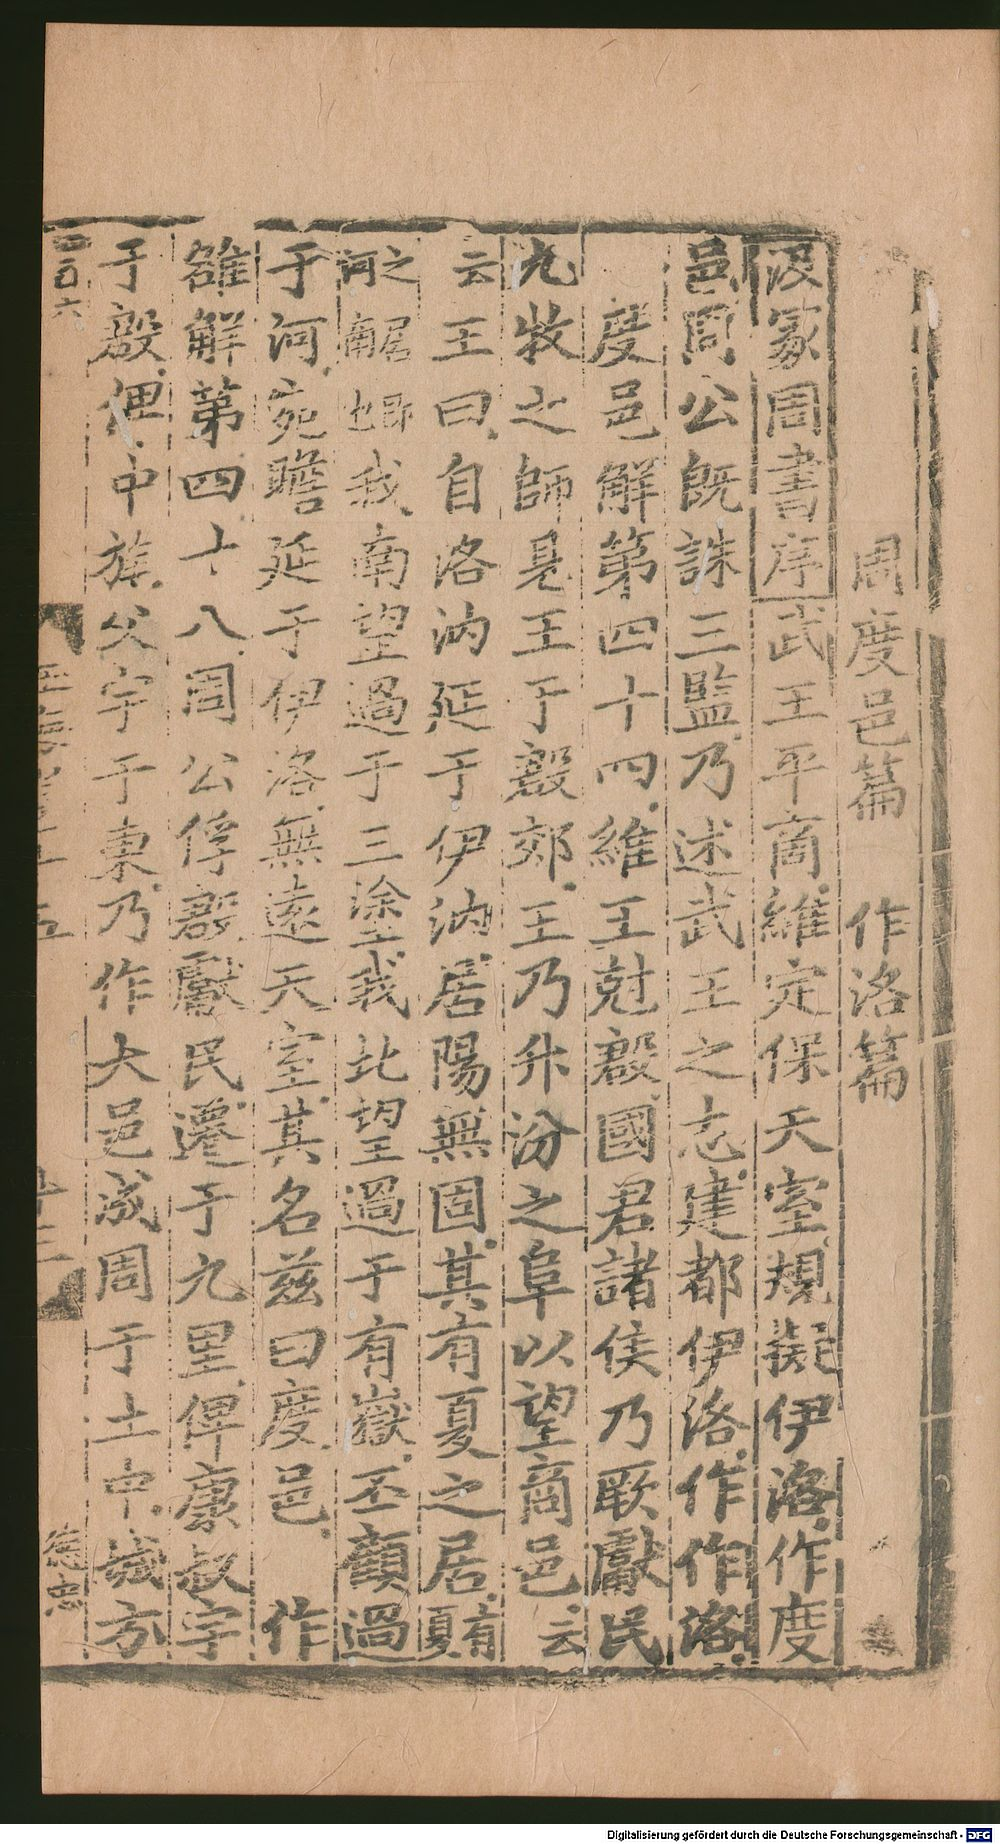 周度邑篇　作洛篇
汲冢周書序武王平商維定保天室規擬伊洛作度
邑周公旣誅三監乃述武王之志建都伊洛作作洛
度邑解第四十四維王尅殷國君諸侯乃厭獻民
九牧之師見王于殷郊王乃升汾之阜以望商邑云
云王曰自洛汭延于伊汭居陽無固其有夏之居有夏
之居河 我南望過于三塗我北望過于有嶽丕顧過
于河宛瞻延于伊洛無遠天室其名茲曰度邑　作
雒解第四十八周公俘殷獻民遷于九里俾康叔宇
于殷俾中旄父宇于東乃作大邑成周于土中城方
五
Digitalisierung gefördert durch die Deutsche Forschungsgemeinschaft - DFG